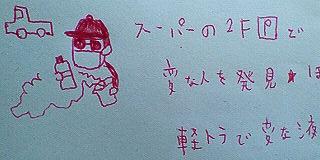 スーパーの2F Pで
変な人を発見★ほ
軽トラで変な液